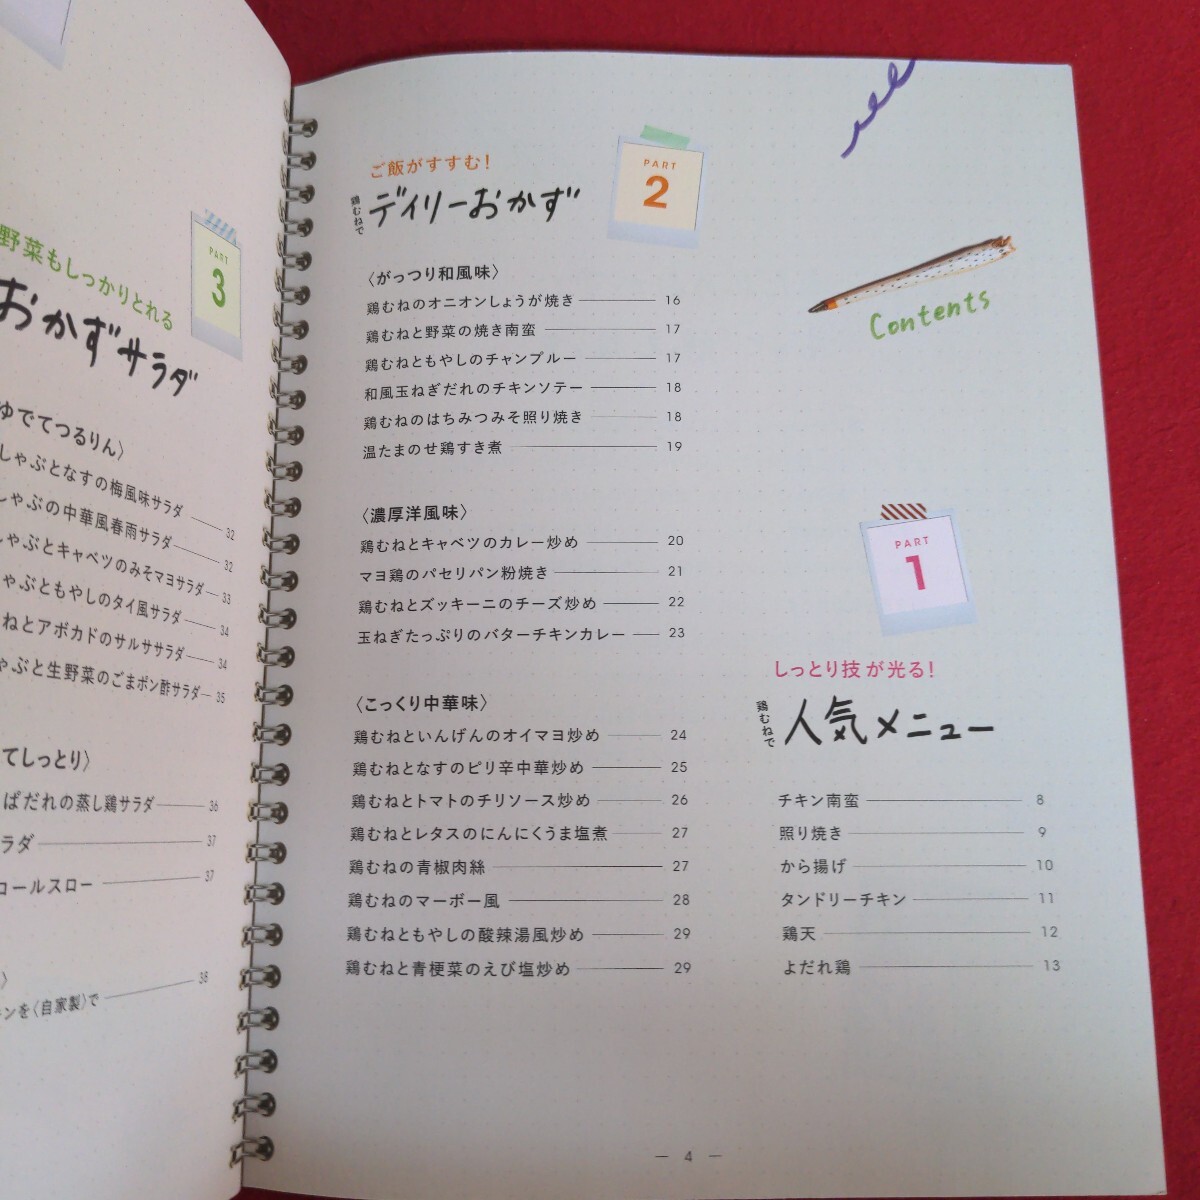 Contents
PART
1
しっとり技が光る!
鶏むねで
人気メニュー
チキン南蛮 8
照り焼き 9
から揚げ 10
タンドリーチキン 11
鶏天 12
よだれ鶏 13
PART
2
ご飯がすすむ!
鶏むねで
デイリーおかず
〈がっつり和風味〉
鶏むねのオニオンしょうが焼き 16
鶏むねと野菜の焼き南蛮 17
鶏むねともやしのチャンプルー 17
和風玉ねぎだれのチキンソテー 18
鶏むねのはちみつみそ照り焼き 18
温たまのせ鶏すき煮 19
〈濃厚洋風味〉
鶏むねとキャベツのカレー炒め 20
マヨ鶏のパセリパン粉焼き 21
鶏むねとズッキーニのチーズ炒め 22
玉ねぎたっぷりのバターチキンカレー 23
〈こっくり中華味〉
鶏むねといんげんのオイマヨ炒め 24
鶏むねとなすのピリ辛中華炒め 25
鶏むねとトマトのチリソース炒め 26
鶏むねとレタスのにんにくうま塩煮 27
鶏むねの青椒肉絲 27
鶏むねのマーボー風 28
鶏むねともやしの酸辣湯風炒め 29
鶏むねと青梗菜のえび塩炒め 29
— 4 —
PART
3
野菜もしっかりとれる
おかずサラダ
ゆでてつるりん〉
しゃぶとなすの梅風味サラダ 32
しゃぶの中華風春雨サラダ 32
しゃぶとキャベツのみそマヨサラダ 33
ゃぶともやしのタイ風サラダ 34
ねとアボカドのサルササラダ 34
ゃぶと生野菜のごまポン酢サラダ 35
てしっとり〉
ぱだれの蒸し鶏サラダ 36
ラダ 37
コールスロー 37
〉
キンを〈自家製〉で 38